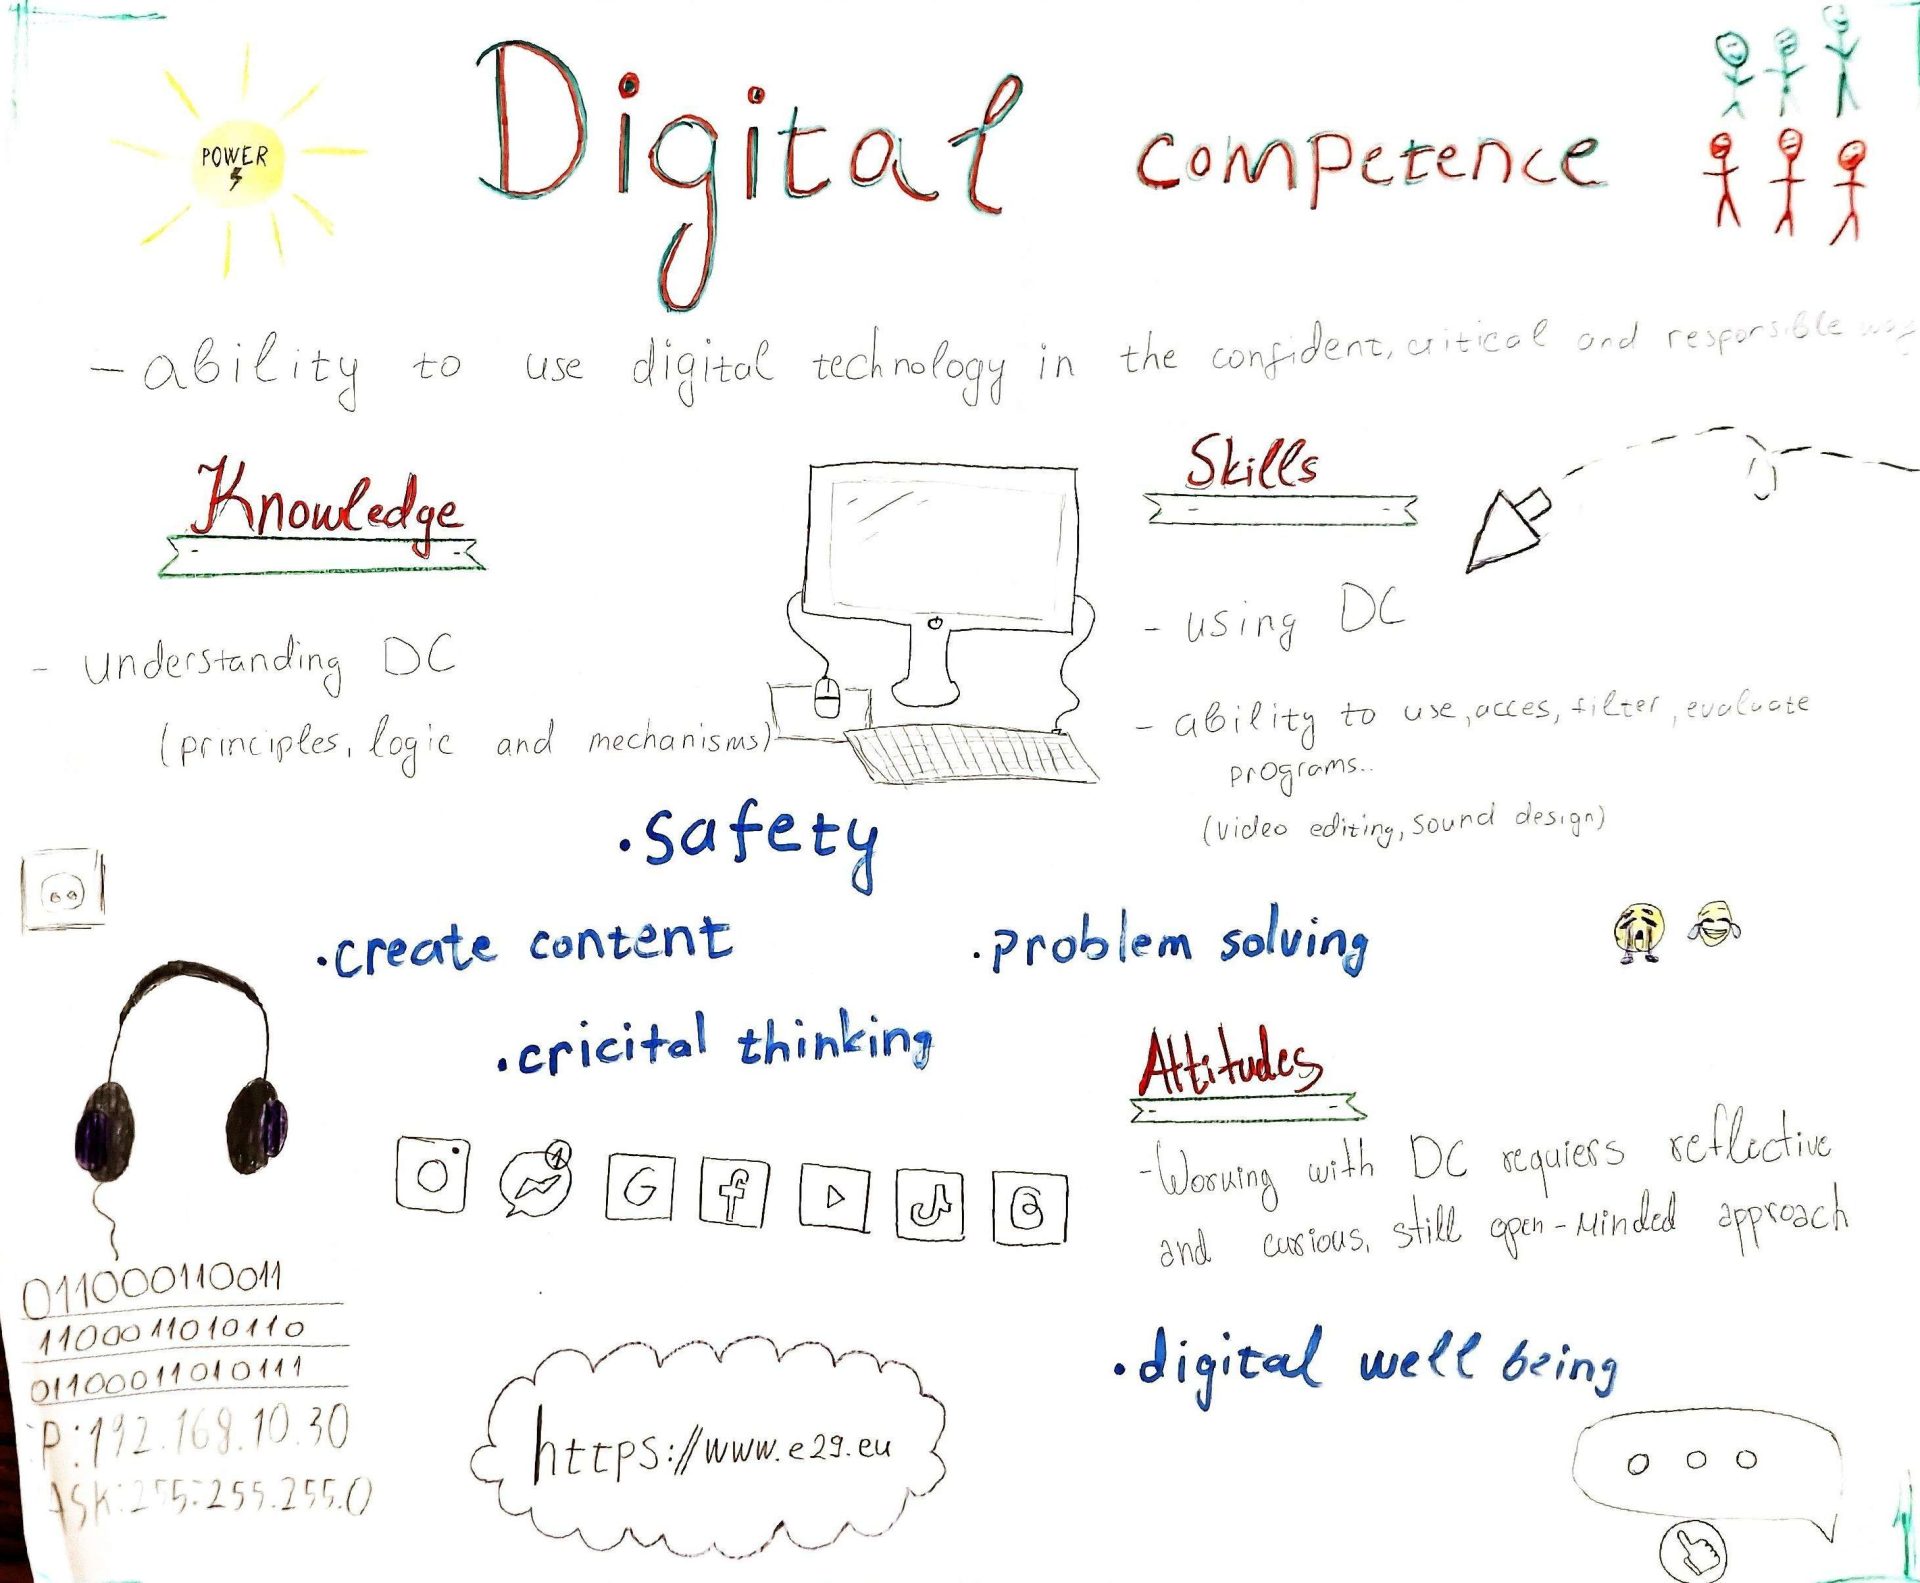 POWER
Digital competence
- ability to use digital technology in the confident, critical and responsible way
Knowledge
- understanding DC
(principles, logic and mechanisms)
Skills
- using DC
- ability to use, acces, filter, evaluate
programs..
(video editing, sound design)
• safety
• create content
• problem solving
• cricital thinking
Attitudes
- Working with DC requiers reflective
and curious, still open-minded approach
1
G
f
011000110011
1100011010110
01100011010111
P: 192.168.10.30
ASK: 255.255.255.0
https://www.e29.eu
• digital well being